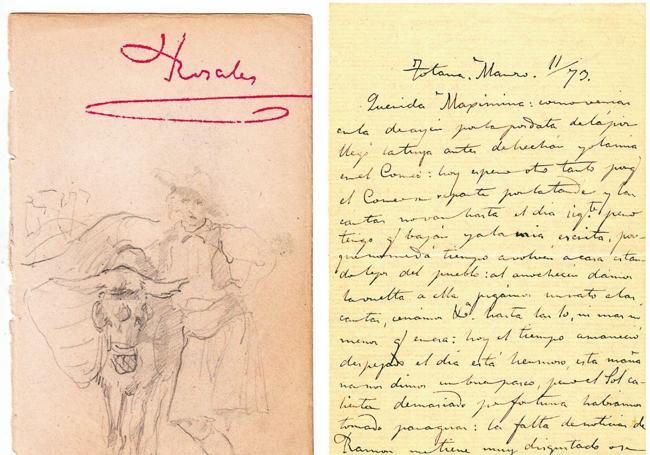 Rosales
Totana, Marzo. 11/73.
Querida Maximina: como verías
en la de ayer por la posdata de la por
llegó la tuya antes de
en el Correo: hoy espero otro tanto porq
el Correo se reparte por la tarde y las
cartas no van hasta el día sigte pero
tengo q bajar ya la mía escrita, por-
que no me dá tiempo a volver a casa estan-
do lejos del pueblo: al anochecer damos
la vuelta a ella jugamos un rato a las
cartas, cenamos hasta las 10, ni mas ni
menos q en esa: hoy el tiempo amaneció
despejado el día está hermoso, esta maña
na nos dimos un buen paseo, pero el Sol ca-
lienta demasiado por fortuna habiamos
tomado paraguas: la falta de noticias de
Ramon me tiene muy disgustado